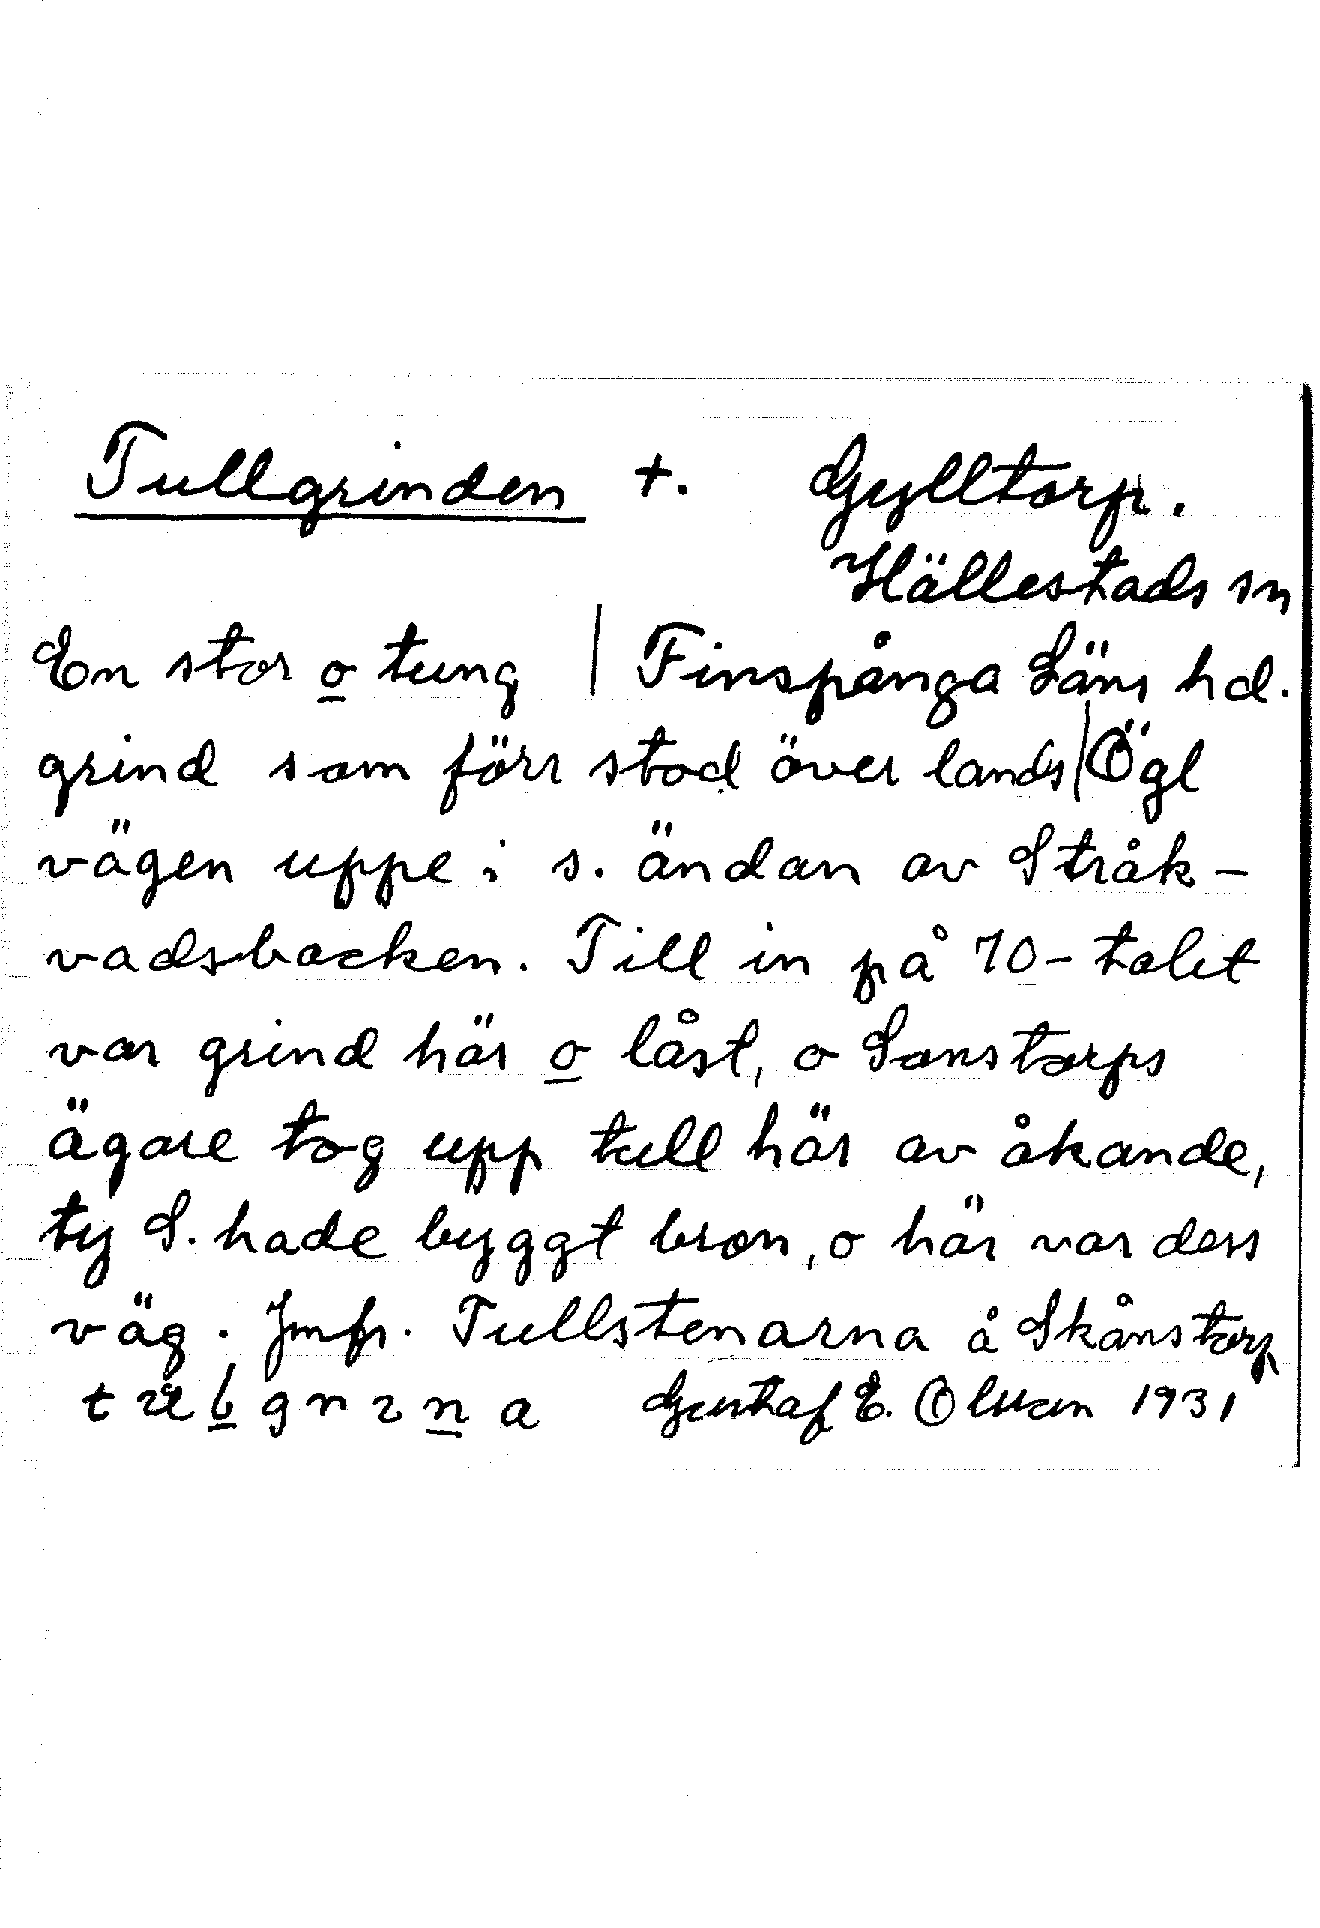 Tullgrinden +. Gylltorp.
Hällestads sn
En stor o tung | Finspånga Läns hd.
grind som förr stod över lands | Ögl
vägen uppe i s. ändan av Stråk-
vadsbacken. Till in på 70-talet
var grind här o låst, o Sonstorps
ägare tog upp tull här av åkande,
ty S. hade byggt bron, o här var dess
väg. Jmfr. Tullstenarna å Skånstorp
Gustaf E. Olsson 1931